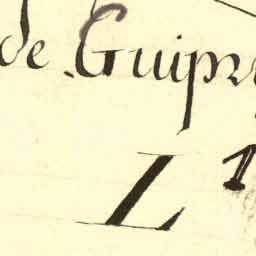 de Guipr
L 1